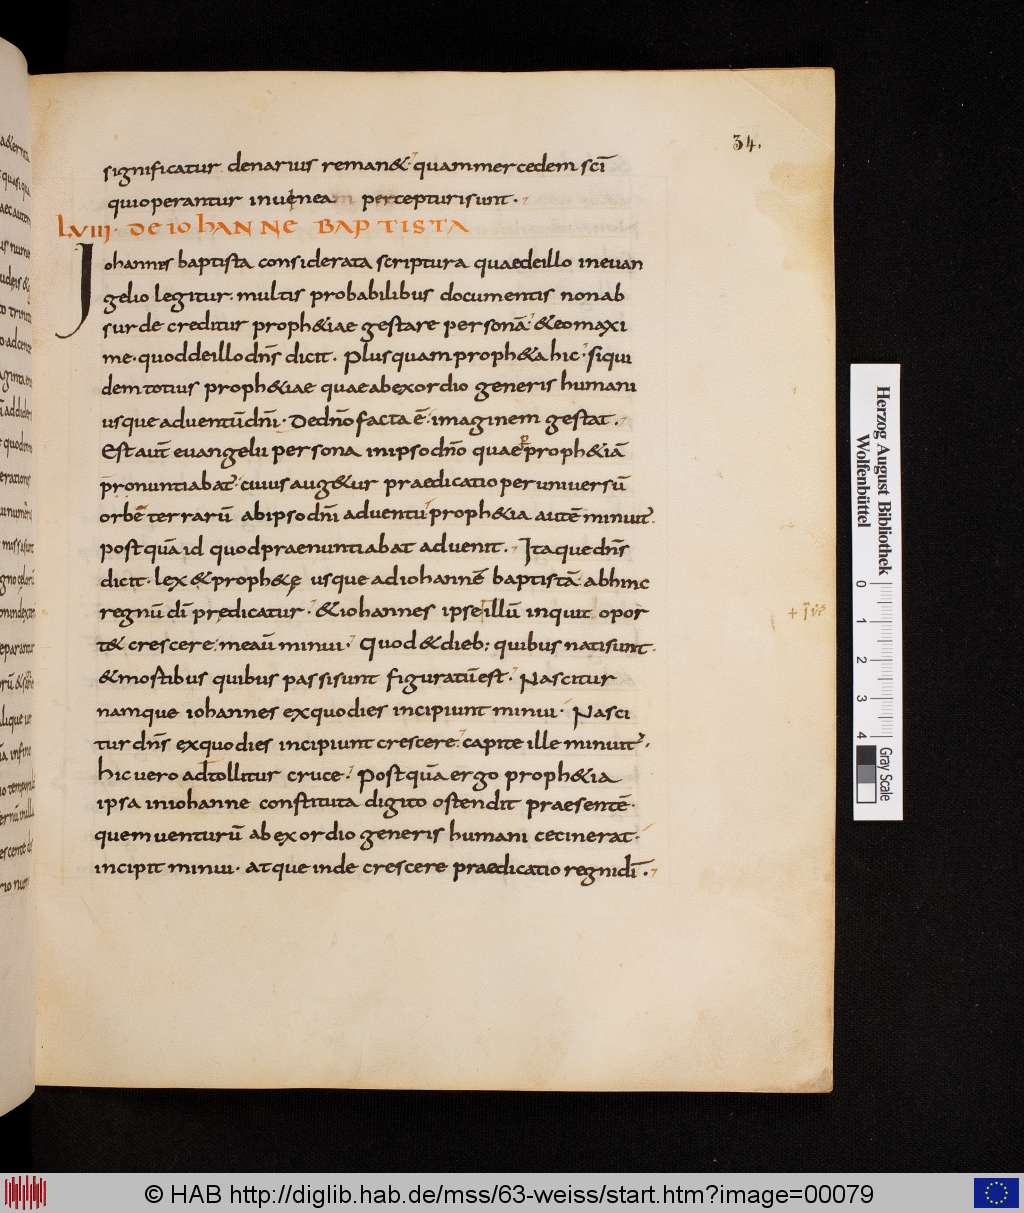 34.
significatur denarius reman&. quam mercedem scī
qui operantur in uinea percepturi sunt.
LVIII. DE IOHANNE BAPTISTA
Iohannes baptista considerata scriptura quae de illo in euan
gelio legitur. multis probabilibus documentis non ab
surde creditur proph&iae gestare personā. & eo maxi
me. quod de illo dn̄s dicit. Plus quam proph&a hic. si qui
dem totius proph&iae quae ab exordio generis humani
usque aduentū dn̄i. De dn̄o facta ē. imaginem gestat.
Est aut̄ euangelii persona in ipso dn̄o quae per proph&iā
pronuntiabat. cuius aug&ur praedicatio per uniuersū
orbē terrarū ab ipso dn̄i aduentu. proph&ia autē minuit.
postquā id quod praenuntiabat aduenit. Itaque dn̄s
dicit. lex & proph&ę usque ad iohannē baptistā. ab hinc
regnū dī prędicatur. & iohannes ipse illū inquit opor
t& crescere. me aū minui. Quod & dieb; quibus nati sunt.
& mortibus quibus passi sunt figuratū est. Nascitur
namque iohannes ex quo dies incipiunt minui. Nasci
tur dn̄s ex quo dies incipiunt crescere. capite ille minuit.
hic uero adtollitur cruce. Postquā ergo proph&ia
ipsa in iohanne constituta digito ostendit praesentē.
quem uenturū ab exordio generis humani cecinerat.
incipit minui. atque inde crescere praedicatio regni dī.
Herzog August Bibliothek
Wolfenbüttel
0 1 2 3 4
Gray Scale
© HAB http://diglib.hab.de/mss/63-weiss/start.htm?image=00079